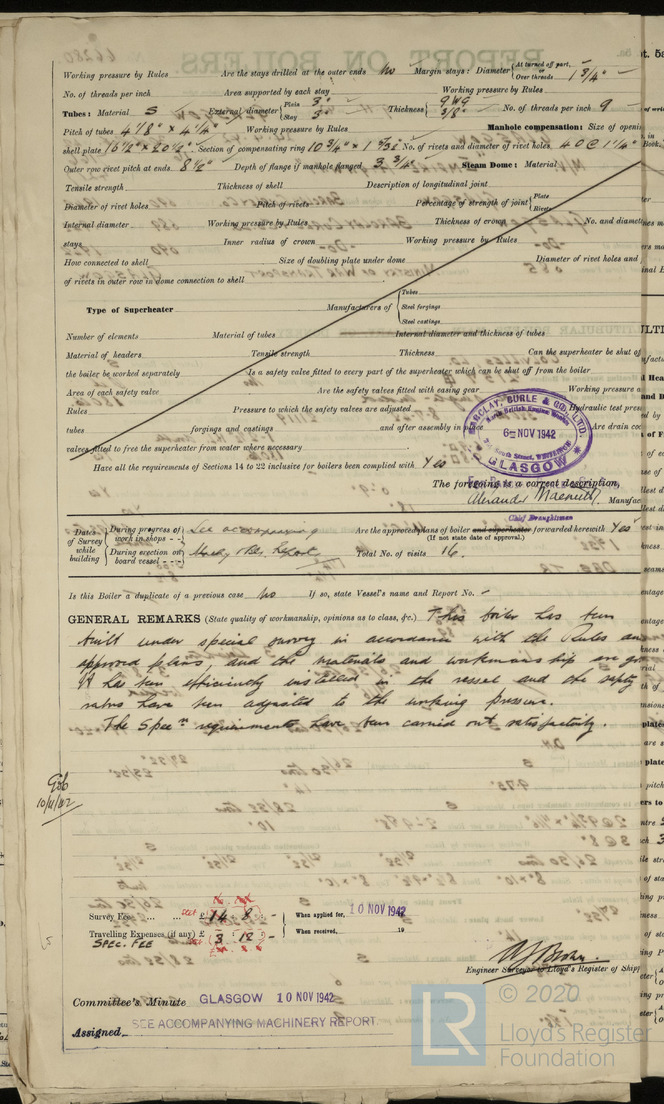 Working pressure by Rules Are the stays drilled at the outer ends No Margin stays: Diameter { At turned off part, or Over threads 1 3/4"
No. of threads per inch Area supported by each stay Working pressure by Rules
Tubes: Material S External diameter { Plain 3" Stay 3" Thickness { 9 WG 3/8" No. of threads per inch 9
Pitch of tubes 4 1/8" × 4 1/4" Working pressure by Rules Manhole compensation: Size of openi
shell plate 16 1/2" × 20 1/2" Section of compensating ring 10 3/4" × 1 9/32 No. of rivets and diameter of rivet holes 40 @ 1 1/4"
Outer row rivet pitch at ends 8 1/2" Depth of flange if manhole flanged 3 3/4" Steam Dome: Material
Tensile strength Thickness of shell Description of longitudinal joint
Diameter of rivet holes Pitch of rivets Percentage of strength of joint { Plate Rivets
Internal diameter Working pressure by Rules Thickness of crown No. and diamet
stays Inner radius of crown Working pressure by Rules
How connected to shell Size of doubling plate under dome Diameter of rivet holes and
of rivets in outer row in dome connection to shell
Type of Superheater Manufacturers of { Tubes Steel forgings Steel castings
Number of elements Material of tubes Internal diameter and thickness of tubes
Material of headers Tensile strength Thickness Can the superheater be shut of
the boiler be worked separately Is a safety valve fitted to every part of the superheater which can be shut off from the boiler
Area of each safety valve Are the safety valves fitted with easing gear Working pressure a
Rules Pressure to which the safety valves are adjusted Hydraulic test pres
tubes forgings and castings and after assembly in place Are drain co
valves fitted to free the superheater from water where necessary
Have all the requirements of Sections 14 to 22 inclusive for boilers been complied with Yes
BARCLAY, CURLE & CO., LTD.
North British Engine Works
6 - NOV 1942
South Street, WHITEINCH
GLASGOW
The foregoing is a correct description,
Manufac
Chief Draughtsman
Dates of Survey while building { During progress of work in shops - - See accompanying Are the approved plans of boiler and superheater forwarded herewith Yes
(If not state date of approval.)
During erection on board vessel - - - Machy Report Total No. of visits 16.
Is this Boiler a duplicate of a previous case No If so, state Vessel's name and Report No. -
GENERAL REMARKS (State quality of workmanship, opinions as to class, &c.) This boiler has been
built under special survey in accordance with the Rules an
approved plans, and the materials and workmanship are go
It has been efficiently installed in the vessel and the safety
valves have been adjusted to the working pressure.
The Specn requirements have been carried out satisfactorily.
10/11/42
Survey Fee £ 14 : 8 : - When applied for, 10 NOV 1942
Travelling Expenses (if any) £ 3 : 12 : - When received, 19
SPEC. FEE
Engineer Surveyor to Lloyd's Register of Ship
Committee's Minute GLASGOW 10 NOV 1942
Assigned SEE ACCOMPANYING MACHINERY REPORT
LR © 2020
Lloyd's Register
Foundation